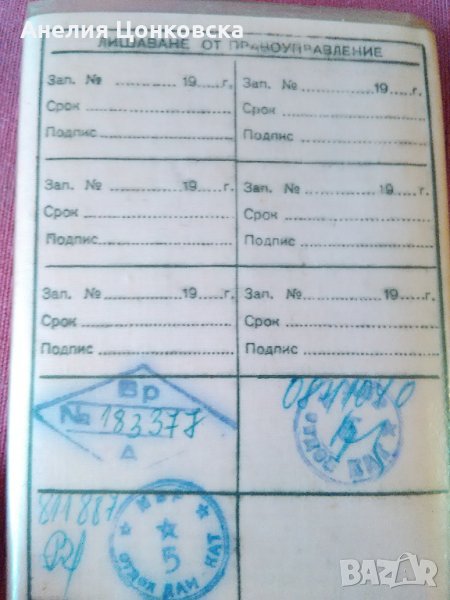 Анелия Цонковска
ЛИШАВАНЕ ОТ ПРАВОУПРАВЛЕНИЕ
Зап. № 19 г. Зап. № 19 г.
Срок Срок
Подпис Подпис
Зап. № 19 г. Зап. № 19 г.
Срок Срок
Подпис Подпис
Зап. № 19 г. Зап. № 19 г.
Срок Срок
Подпис Подпис
Вр
№ 183377
А
5
ОТДЕЛ ДАИ КАТ
BAZAR